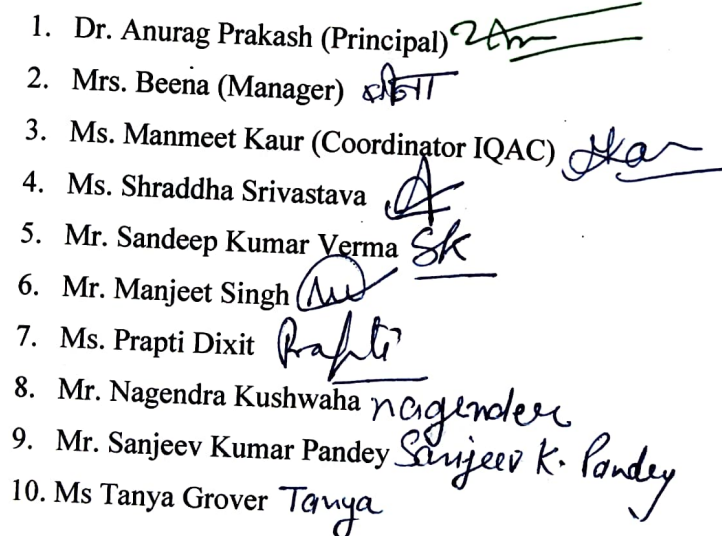 1. Dr. Anurag Prakash (Principal)
2. Mrs. Beena (Manager) बीना
3. Ms. Manmeet Kaur (Coordinator IQAC)
4. Ms. Shraddha Srivastava
5. Mr. Sandeep Kumar Verma SK
6. Mr. Manjeet Singh
7. Ms. Prapti Dixit Prapti
8. Mr. Nagendra Kushwaha nagender
9. Mr. Sanjeev Kumar Pandey Sanjeev K. Pandey
10. Ms Tanya Grover Tanya